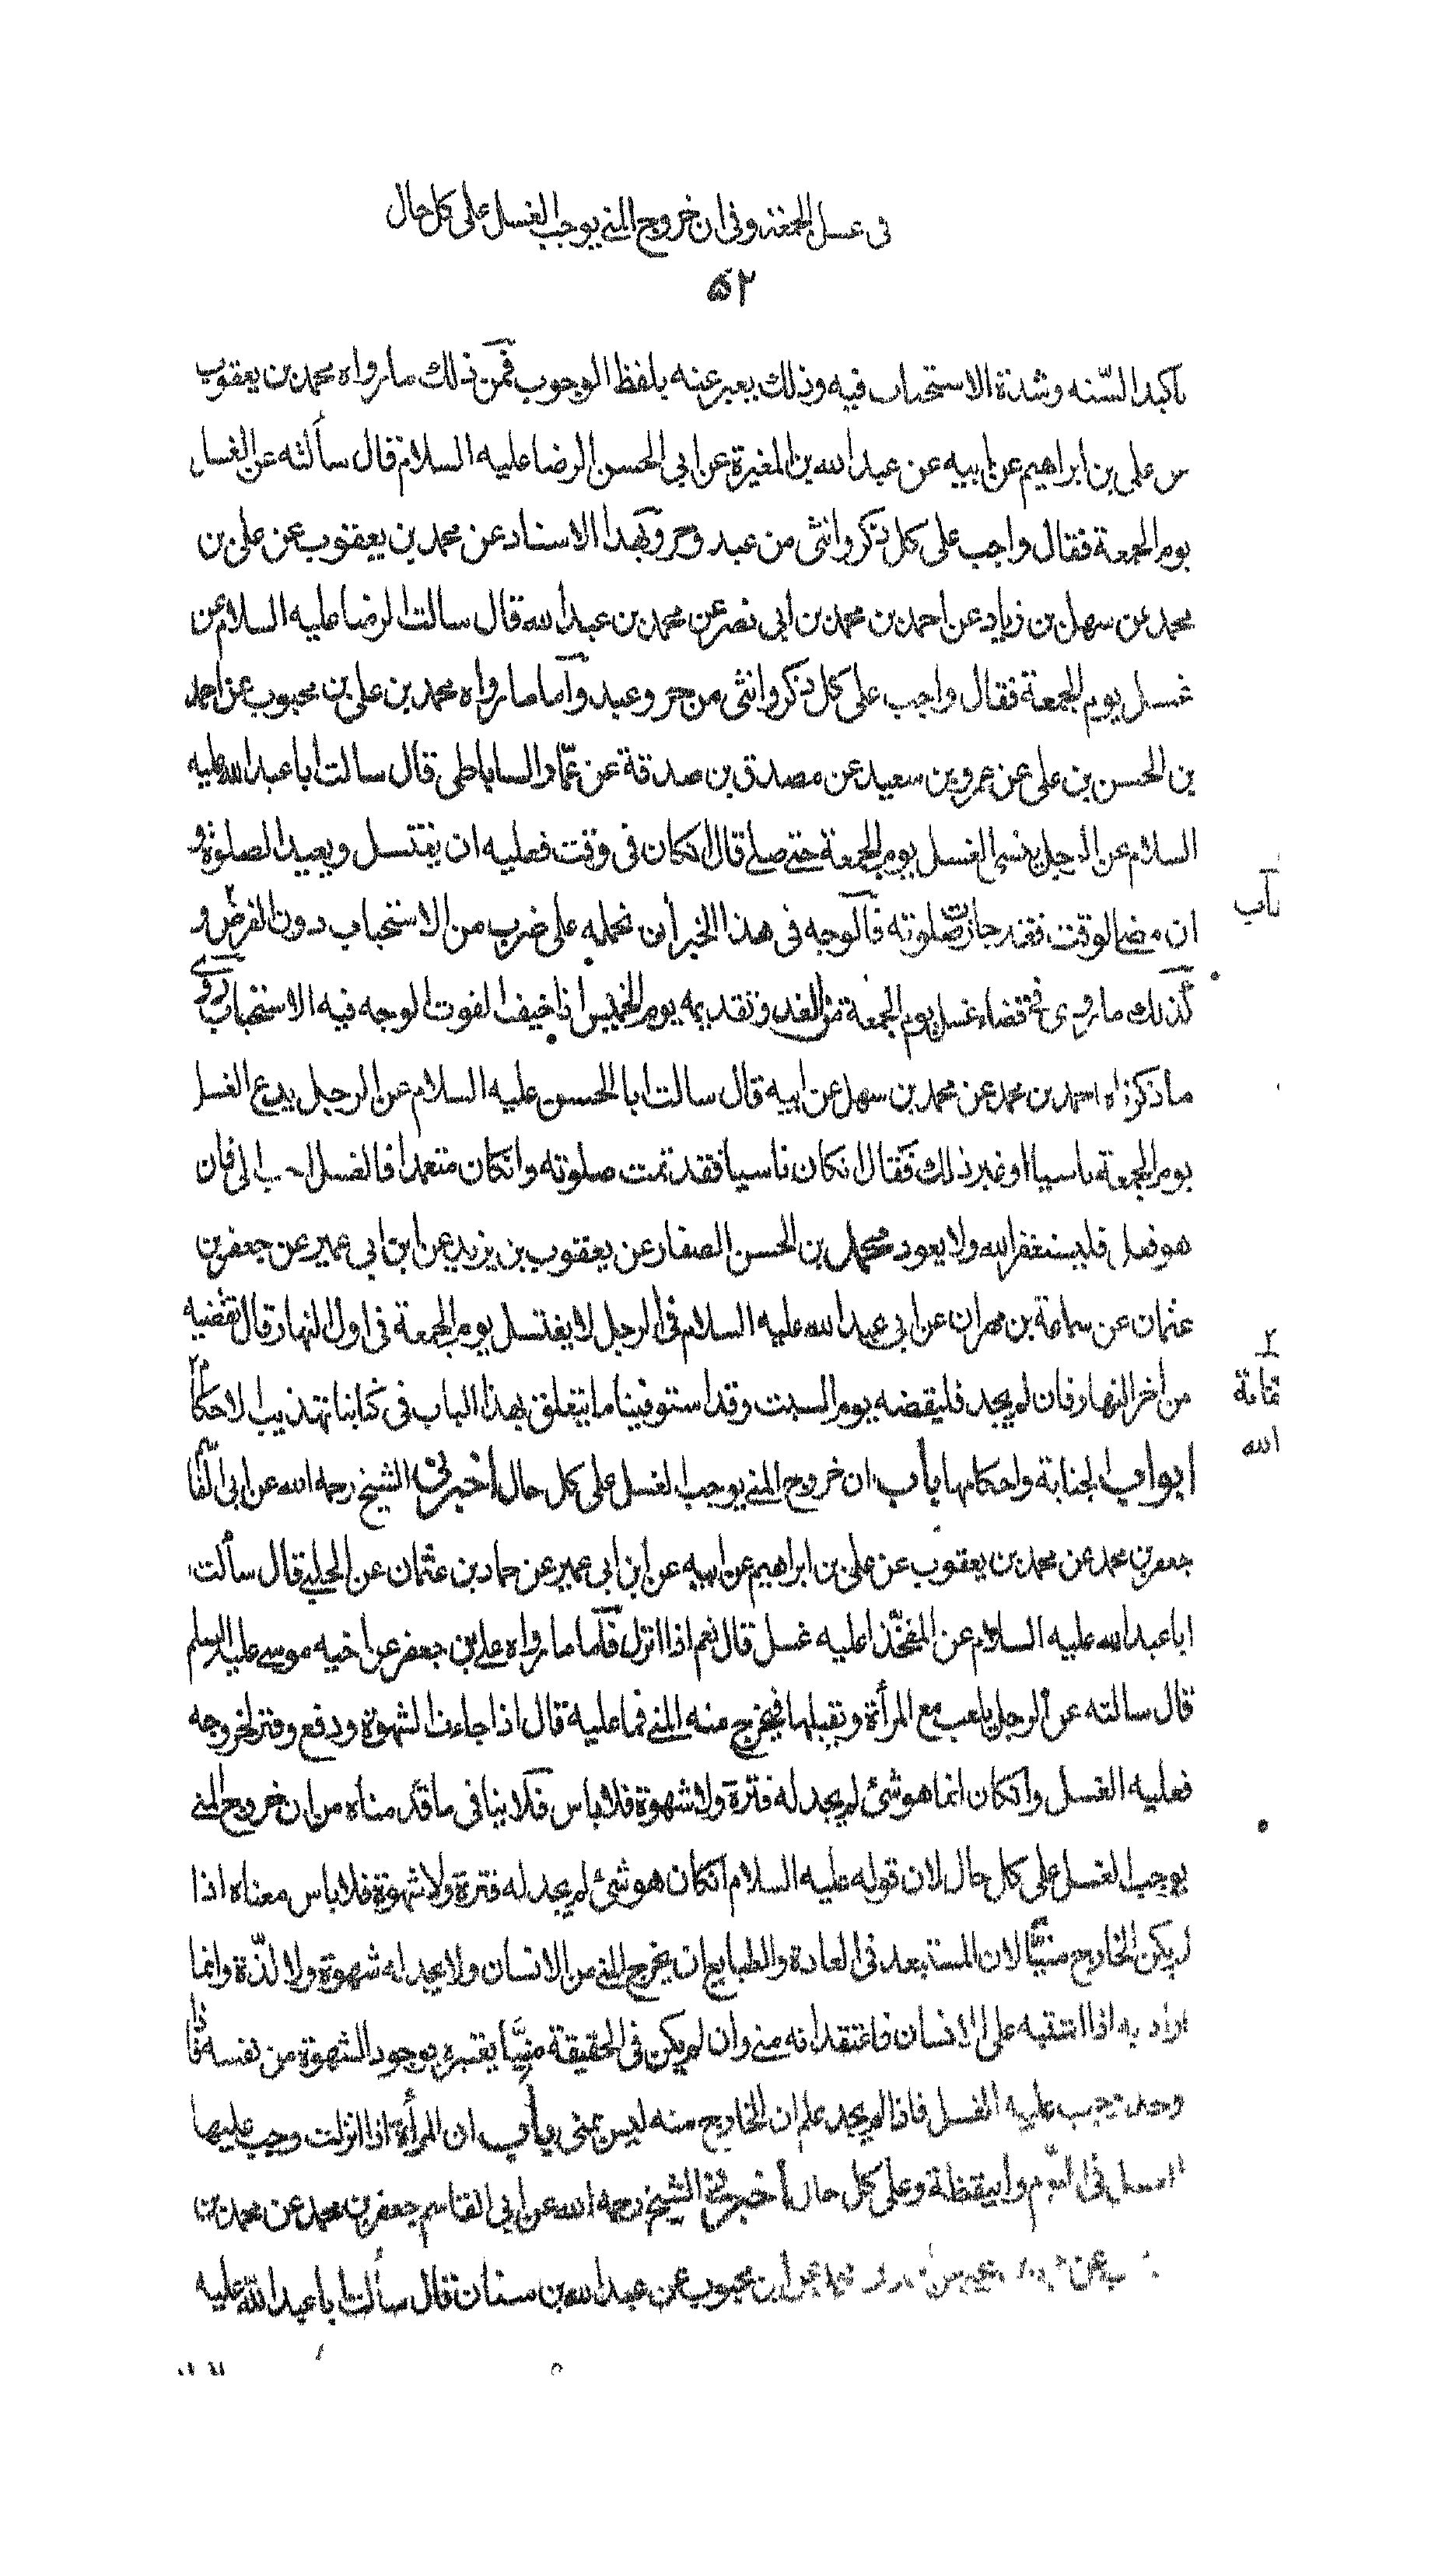 في غسل الجمعة وفي ان خروج المني يوجب الغسل على كل حال
٥٢
تاكيد السّنه وشدة الاستحباب فيه وذلك يعبر عنه بلفظ الوجوب فمن ذلك ما رواه محمد بن يعقوب
عن علي بن ابراهيم عن ابيه عن عبد الله بن المغيرة عن ابي الحسن الرضا عليه السلام قال سألته عن الغسل
يوم الجمعة فقال واجب على كل ذكر وانثى من عبد وحر وبهذا الاسناد عن محمد بن يعقوب عن علي بن
محمد عن سهل بن زياد عن احمد بن محمد بن ابي نصر عن محمد بن عبد الله قال سالت الرضا عليه السلام عن
غسل يوم الجمعة فقال واجب على كل ذكر وانثى من حر وعبد وأما ما رواه محمد بن علي بن محبوب عن احمد
بن الحسن بن علي عن عمرو بن سعيد عن مصدق بن صدقة عن عمّار الساباطي قال سالت ابا عبد الله عليه
السلام عن الرجل ينسى الغسل يوم الجمعة حتى صلى قال ان كان في وقت فعليه ان يغتسل ويعيد الصلوة و
ان مضى الوقت فقد جازت صلوته فالوجه في هذا الخبر أن نحمله على ضرب من الاستحباب دون الفرض و
كذلك ما روى في قضاء غسل يوم الجمعة من الغد وتقديمه يوم الخميس اذا خيف الفوت الوجه فيه الاستحباب روى
ما ذكرناه احمد بن محمد عن محمد بن سهل عن ابيه قال سالت ابا الحسن عليه السلام عن الرجل يدع الغسل
يوم الجمعة ناسيا او غير ذلك فقال ان كان ناسيا فقد تمت صلوته وان كان متعمدا فالغسل احب الي فان
هو فعل فليستغفر الله ولا يعود محمد بن الحسن الصفار عن يعقوب بن يزيد عن ابن ابي عمير عن جعفر بن
عثمان عن سماعة بن مهران عن ابي عبد الله عليه السلام في الرجل لا يغتسل يوم الجمعة في اول النهار قال يقضيه
من اخر النهار فان لم يجد فليقضه يوم السبت وقد استوفينا ما يتعلق بهذا الباب في كتابنا تهذيب الاحكام
ابواب الجنابة واحكامها باب ان خروج المني يوجب الغسل على كل حال أخبرني الشيخ رحمه الله عن ابي القاسم
جعفر بن محمد عن محمد بن يعقوب عن علي بن ابراهيم عن ابيه عن ابن ابي عمير عن حماد بن عثمان عن الحلبي قال سألت
ابا عبد الله عليه السلام عن المفخّذ اعليه غسل قال نعم اذا انزل فأما ما رواه علي بن جعفر عن اخيه موسى عليه السلم
قال سالته عن الرجل يلعب مع المرأة ويقبلها فيخرج منه المني فما عليه قال اذا جاءت الشهوة ودفع وفتر لخروجه
فعليه الغسل وان كان انما هو شئ لم يجد له فترة ولا شهوة فلا باس فلا ينافي ما قدمناه من ان خروج المني
يوجب الغسل على كل حال لان قوله عليه السلام ان كان هو شئ لم يجد له فترة ولا شهوة فلا باس معناه اذا
لم يكن الخارج منيّا لان المستبعد في العادة والطبايع ان يخرج المني من الانسان ولا يجد له شهوة ولا لذّة وانما
اراد به اذا اشتبه على الانسان فاعتقد انه مني وان لم يكن في الحقيقة منيّا يعتبره بوجود الشهوة من نفسه فاذا
وجد يجب عليه الغسل فاذا لم يجد علم ان الخارج منه ليس بمني باب ان المرأة اذا انزلت وجب عليها
الغسل في النوم واليقظة وعلى كل حال أخبرني الشيخ رحمه الله عن ابي القاسم جعفر بن محمد عن محمد بن
عن ابن محبوب عن عبد الله بن سنان قال سألت ابا عبد الله عليه